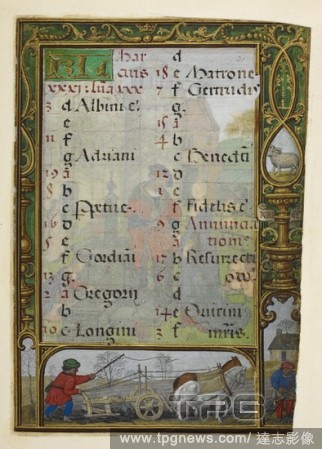 KL Mar
cius
xxxi: lūa xxx
3 d Albini e.
e
11 f
g Adriani
19 a
8 b
c Ppetue.
16 d
5 e
f Gordiai
13 g.
2 a Gregorii
b
10 c Longini
d
18 e Matrone
7 f Gertrudis
g.
15 a
4 b
c Benedcti
12 d
1 e
f Fidelis e.
9 g Annuncia
a tionis
17 b Resurrecti
6 c o dn.
d
14 e Quirini
3 f mris.
TPG
www.tpgnews.com/ 達志影像